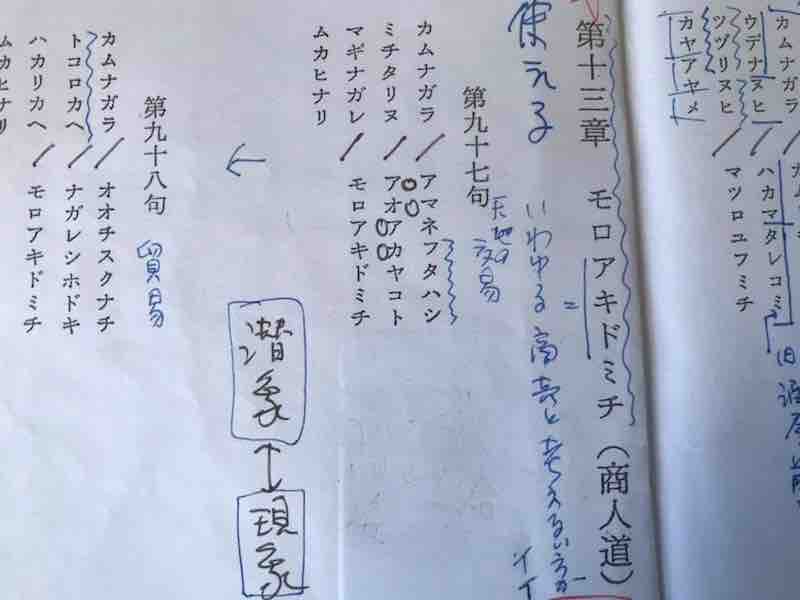 カムナガラ
ウデナヌヒ／ハカマタレコミ
ツヅリヌヒ／マツロユフミチ
カヤアヤメ
第十三章　モロアキドミチ（商人道）
使える
いわゆる商売と考える方が
イイ
第九十七句　天地の交易
カムナガラ／アマネフタハシ
ミチタリヌ／アオアカヤコト
マギナガレ／モロアキドミチ
ムカヒナリ
潜象
現象
第九十八句　貿易
カムナガラ／オオチスクナチ
トコロカヘ／ナガレシホドキ
ハカリカヘ／モロアキドミチ
ムカヒナリ